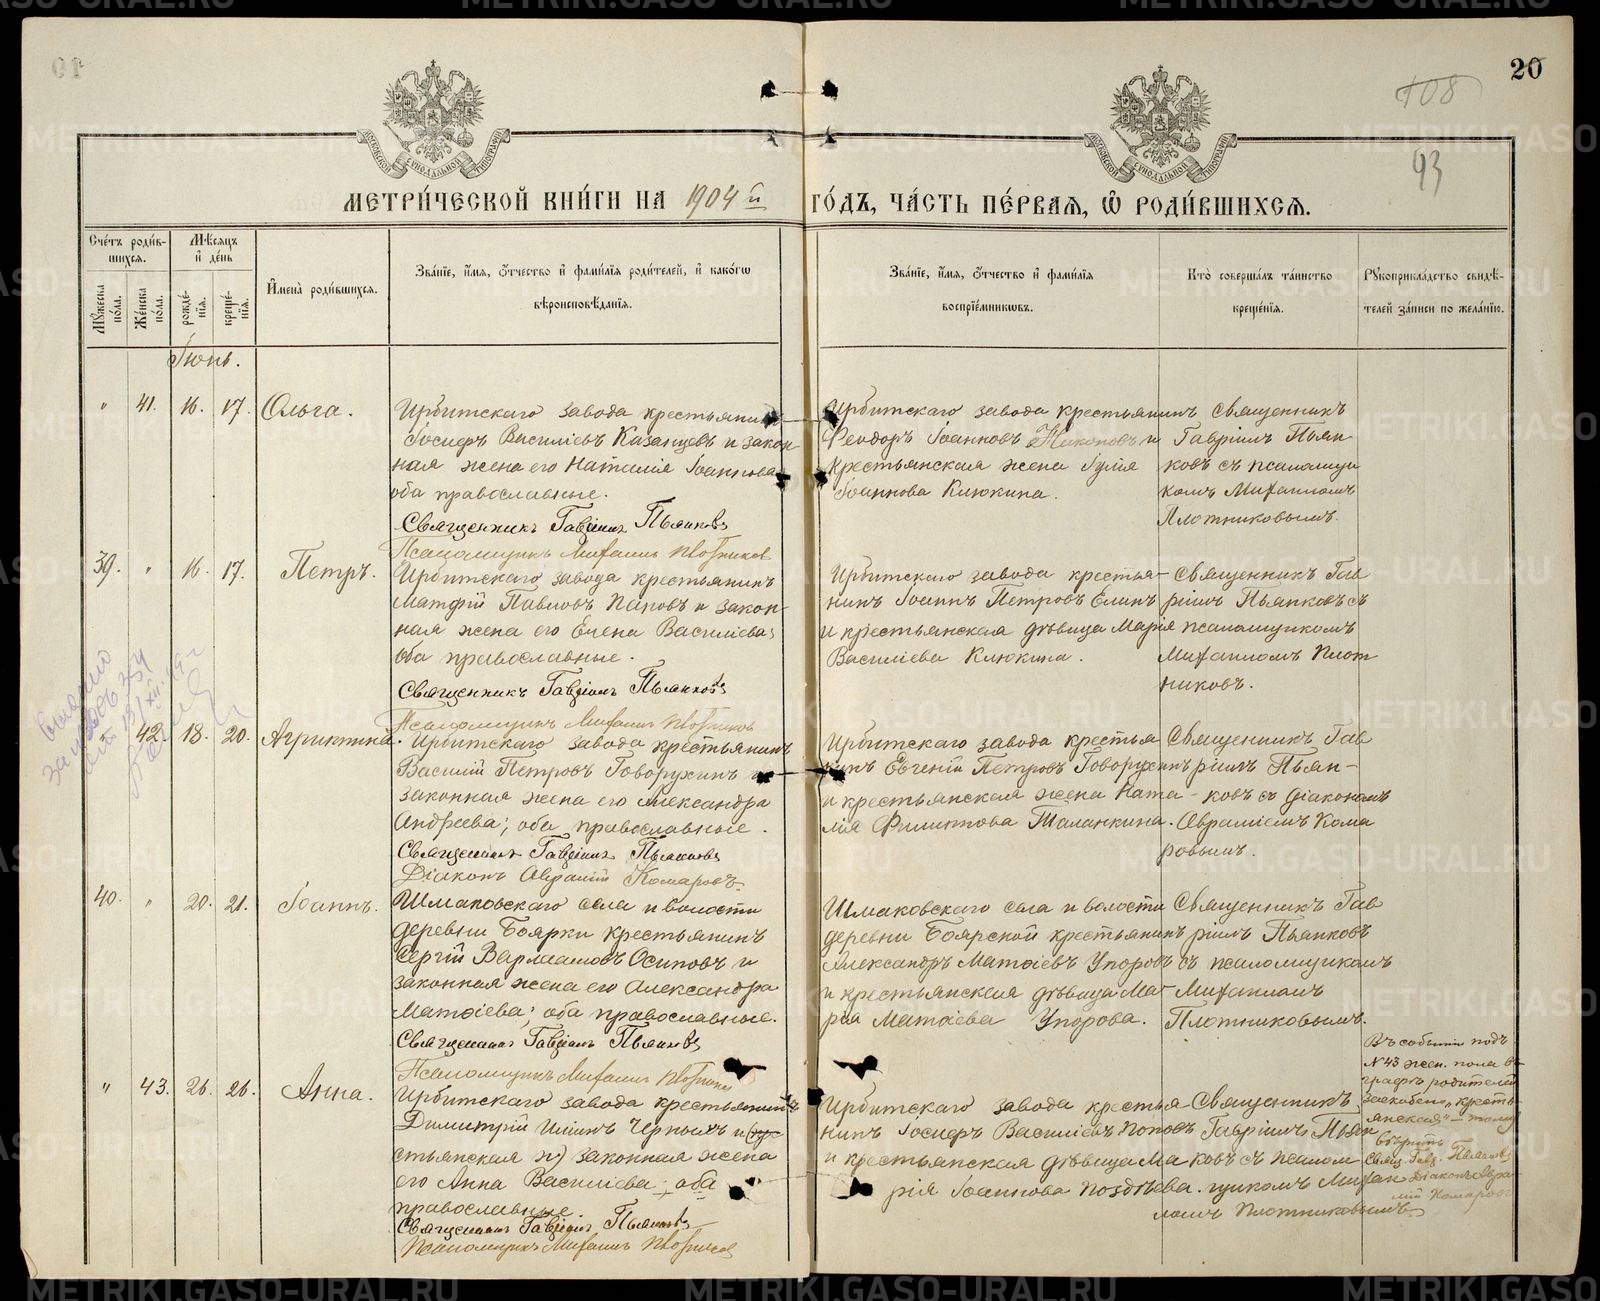 20
108
93
МОСКОВСКОЙ СѴНОДАЛЬНОЙ ТИПОГРАФІИ
МОСКОВСКОЙ СѴНОДАЛЬНОЙ ТИПОГРАФІИ
МЕТРИ́ЧЕСКОЙ КНИ́ГИ НА 1904й ГО́ДЪ, ЧА́СТЬ ПЕ́РВАЯ, Ѡ҆ РОДИ́ВШИХСЯ.
Сче́тъ роди́в-
шихся.
Мꙋ́жеска по́ла.
Же́нска по́ла.
Мѣ́сяцъ
и҆ де́нь
рожде́-
нїя.
креще́-
нїя.
И҆мена̀ роди́вшихся.
Зва́нїе, и҆́мя, ѻ҆́тчество и҆ фами́лїя роди́телей, и҆ како́гѡ
вѣроисповѣ́данїя.
Зва́нїе, и҆́мя, ѻ҆́тчество и҆ фами́лїя
воспрїе́мниковъ.
Кто̀ соверша́лъ та́инство
креще́нїя.
Рꙋкоприкла́дство свидѣ́-
телей за́писи по жела́нїю.
Іюнь.
" 41. 16. 17. Ольга.
Ирбитскаго завода крестьянинъ
Іосифъ Василіевъ Казанцевъ и закон
ная жена его Наталія Іоаннова
оба православные.
Священникъ Гавріилъ Пьянковъ
Псаломщикъ Михаилъ Плотников
Ирбитскаго завода крестьянинъ
Феодоръ Іоанновъ Никоновъ и
крестьянская жена Іулія
Іоаннова Клюкина.
Священникъ
Гавріилъ Пьян
ковъ съ псаломщи
комъ Михаиломъ
Плотниковымъ.
39. " 16. 17. Петръ.
Ирбитскаго завода крестьянинъ
Матфій Павловъ Паповъ и закон-
ная жена его Елена Василіева;
оба православные.
Священникъ Гавріилъ Пьянковъ
Псаломщикъ Михаилъ Плотников
Ирбитскаго завода крестья-
нинъ Іоаннъ Петровъ Елинъ
и крестьянская дѣвица Марія
Василіева Клюкина.
Священникъ Гав
ріилъ Пьянковъ съ
псаломщикомъ
Михаиломъ Плот
никовъ.
" 42. 18. 20. Агриппина.
Ирбитскаго завода крестьянинъ
Василій Петровъ Говорухинъ и
законная жена его Александра
Андреева; оба православные.
Священникъ Гавріилъ Пьянковъ
Діаконъ Аврамій Комаровъ
Ирбитскаго завода крестья
нинъ Евгеній Петровъ Говорухинъ
и крестьянская жена Ната-
лія Филиппова Таланкина.
Священникъ Гав
ріилъ Пьян-
ковъ съ діакономъ
Авраміемъ Кома
ровымъ.
40. " 20. 21. Іоаннъ.
Шмаковскаго села и волости
деревни Боярки крестьянинъ
Сергій Варлаамовъ Осиповъ и
законная жена его Александра
Матѳіева; оба православные.
Священникъ Гавріилъ Пьянковъ
Псаломщикъ Михаилъ Плотников
Шмаковскаго села и волости
деревни Боярской крестьянинъ
Александръ Матѳіевъ Упоровъ
и крестьянская дѣвица Ма-
рія Матѳіева Упорова.
Священникъ Гав
ріилъ Пьянковъ
съ псаломщикомъ
Михаиломъ
Плотниковымъ.
" 43. 26. 26. Анна.
Ирбитскаго завода крестьянинъ
Димитрій Иліинъ Черныхъ и (кре
стьянская ж) законная жена
его Анна Василіева; оба
православные.
Священникъ Гавріилъ Пьянковъ
Псаломщикъ Михаилъ Плотников
Ирбитскаго завода крестья-
нинъ Іосифъ Василіевъ Поповъ
и крестьянская дѣвица Ма
рія Іоаннова Позднѣева.
Священникъ
Гавріилъ Пьян
ковъ съ псалом
щикомъ Михаи
ломъ Плотниковымъ.
Въ событіи подъ
№43 жен. пола въ
графѣ родителей
заскоблено "кресть
янская" – тому
вѣрить
Свящ. Гавр. Пьянковъ
Діаконъ Авра
мій Комаровъ